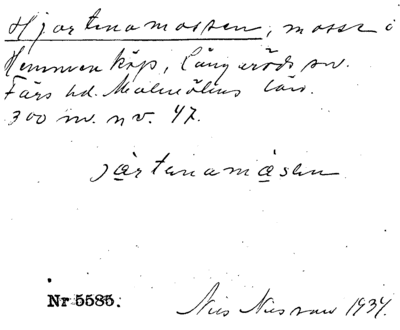 Hjortenamossen, mosse i
Hemmenköp, Långaröds sn.
Färs hd. Malmöhus län.
300 m. nv. 47.
järtenamåsen
Nr 5585.
Nils Nilsson 1934.